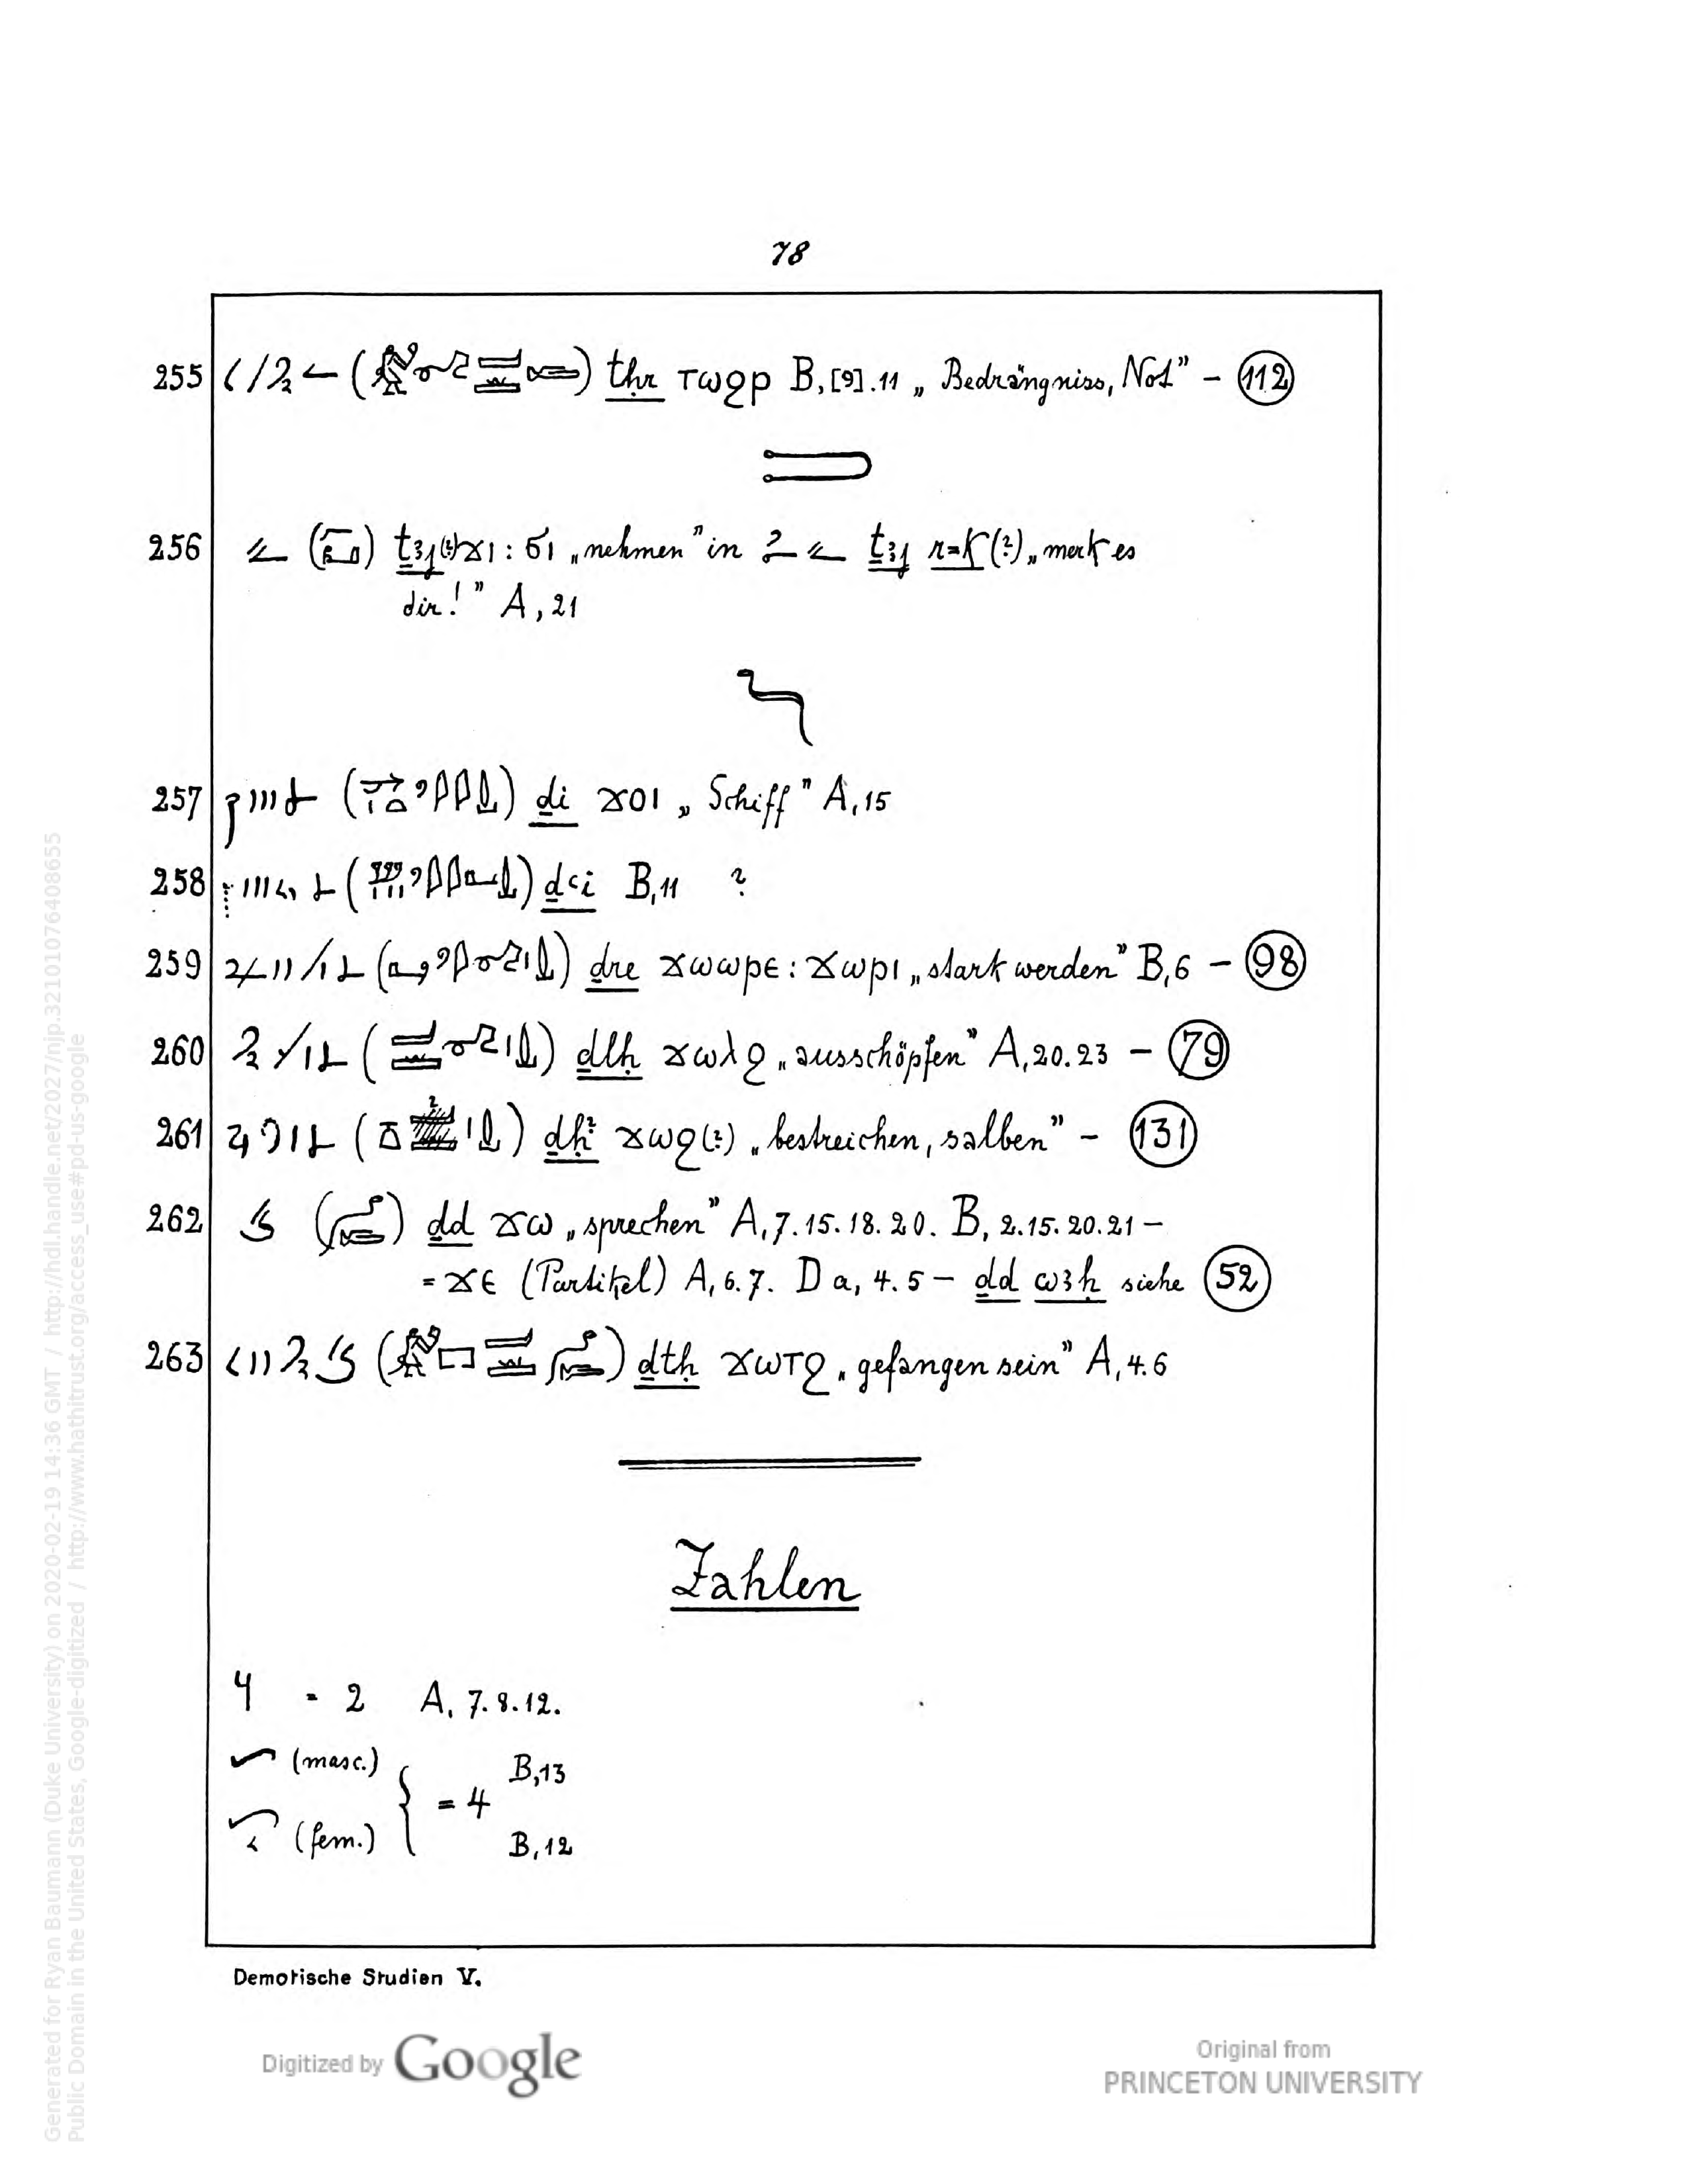 78
255 ( ) tḥr ⲧⲱϩⲣ B, [9].11 „Bedrängniss, Not” – 112
256 ( ) ṯꜣj(?) ϫⲓ : ϭⲓ „nehmen” in ṯꜣj r=k (?) „merk es
dir!” A, 21
257 ( ) ḏi ϫⲟⲓ „Schiff” A, 15
258 ( ) ḏꜥi B, 11 ?
259 ( ) ḏre ϫⲱⲱⲣⲉ : ϫⲱⲣⲓ „stark werden” B, 6 – 98
260 ( ) ḏlḥ ϫⲱⲗϩ „ausschöpfen” A, 20.23 – 79
261 ( ) ḏḥ? ϫⲱϩ(?) „bestreichen, salben” – 131
262 ( ) ḏd ϫⲱ „sprechen” A, 7.15.18.20. B, 2.15.20.21 –
= ϫⲉ (Partikel) A, 6.7. D a, 4.5 – ḏd wꜣḥ siehe 52
263 ( ) ḏtḥ ϫⲱⲧϩ „gefangen sein” A, 4.6
Zahlen
= 2 A, 7.8.12.
(masc.) B, 13
= 4
(fem.) B, 12
Demotische Studien V.
Digitized by Google
Original from
PRINCETON UNIVERSITY
Generated for Ryan Baumann (Duke University) on 2020-02-19 14:36 GMT / http://hdl.handle.net/2027/njp.32101076408655
Public Domain in the United States, Google-digitized / http://www.hathitrust.org/access_use#pd-us-google